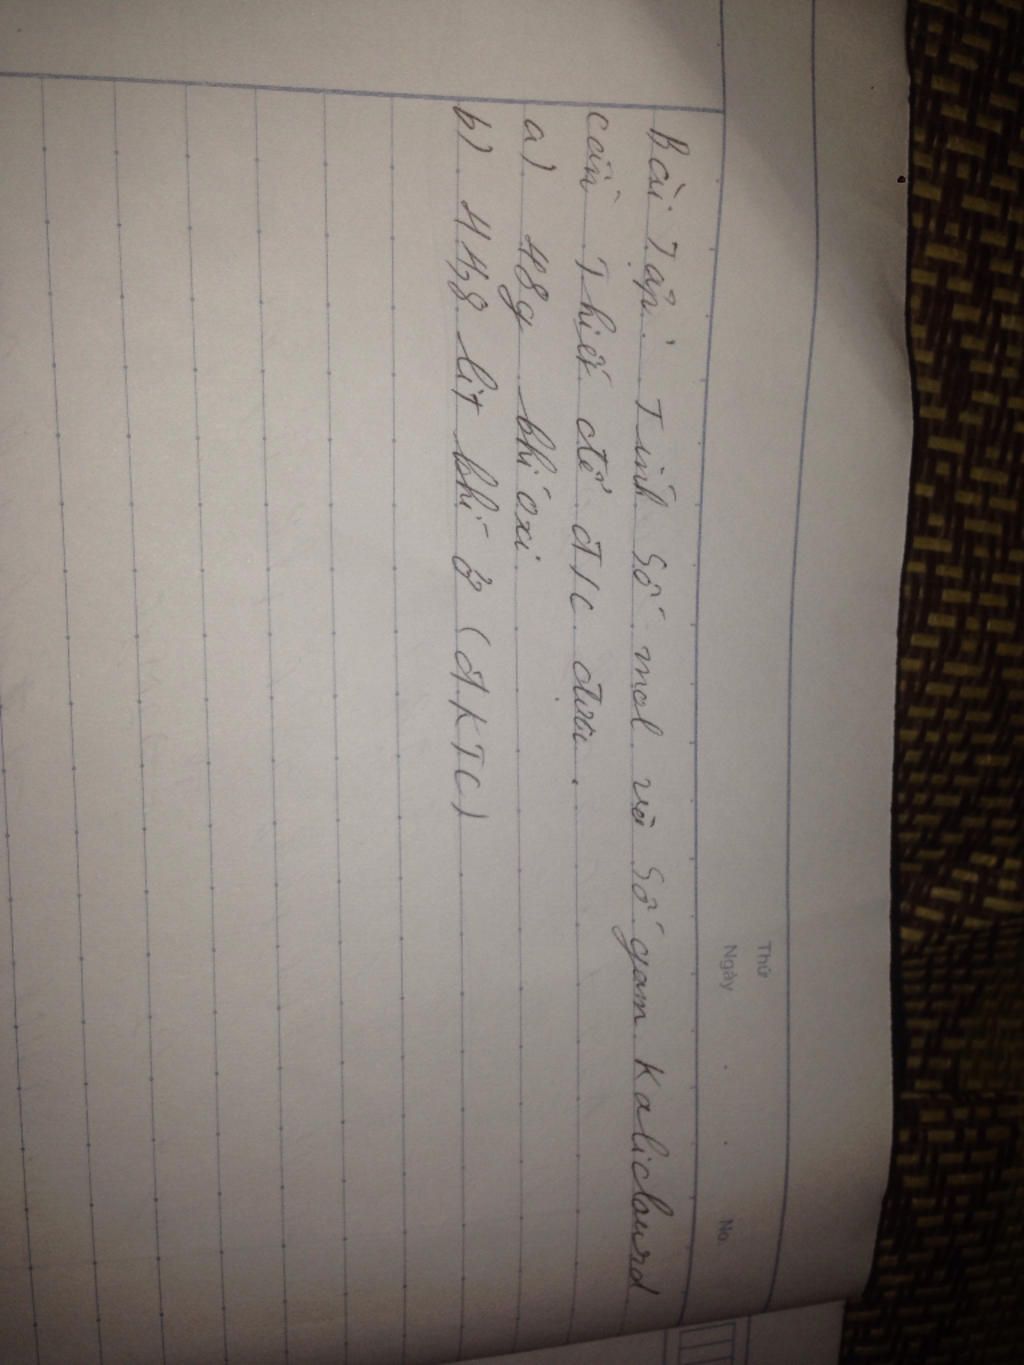 Thứ
Ngày
No.
Bài Tập: Tính số mol và số gam Kaliclourd
cần Thiết để đ/c được.
a) 48g khí oxi
b) 44,8 lít khí ở (đKTC)